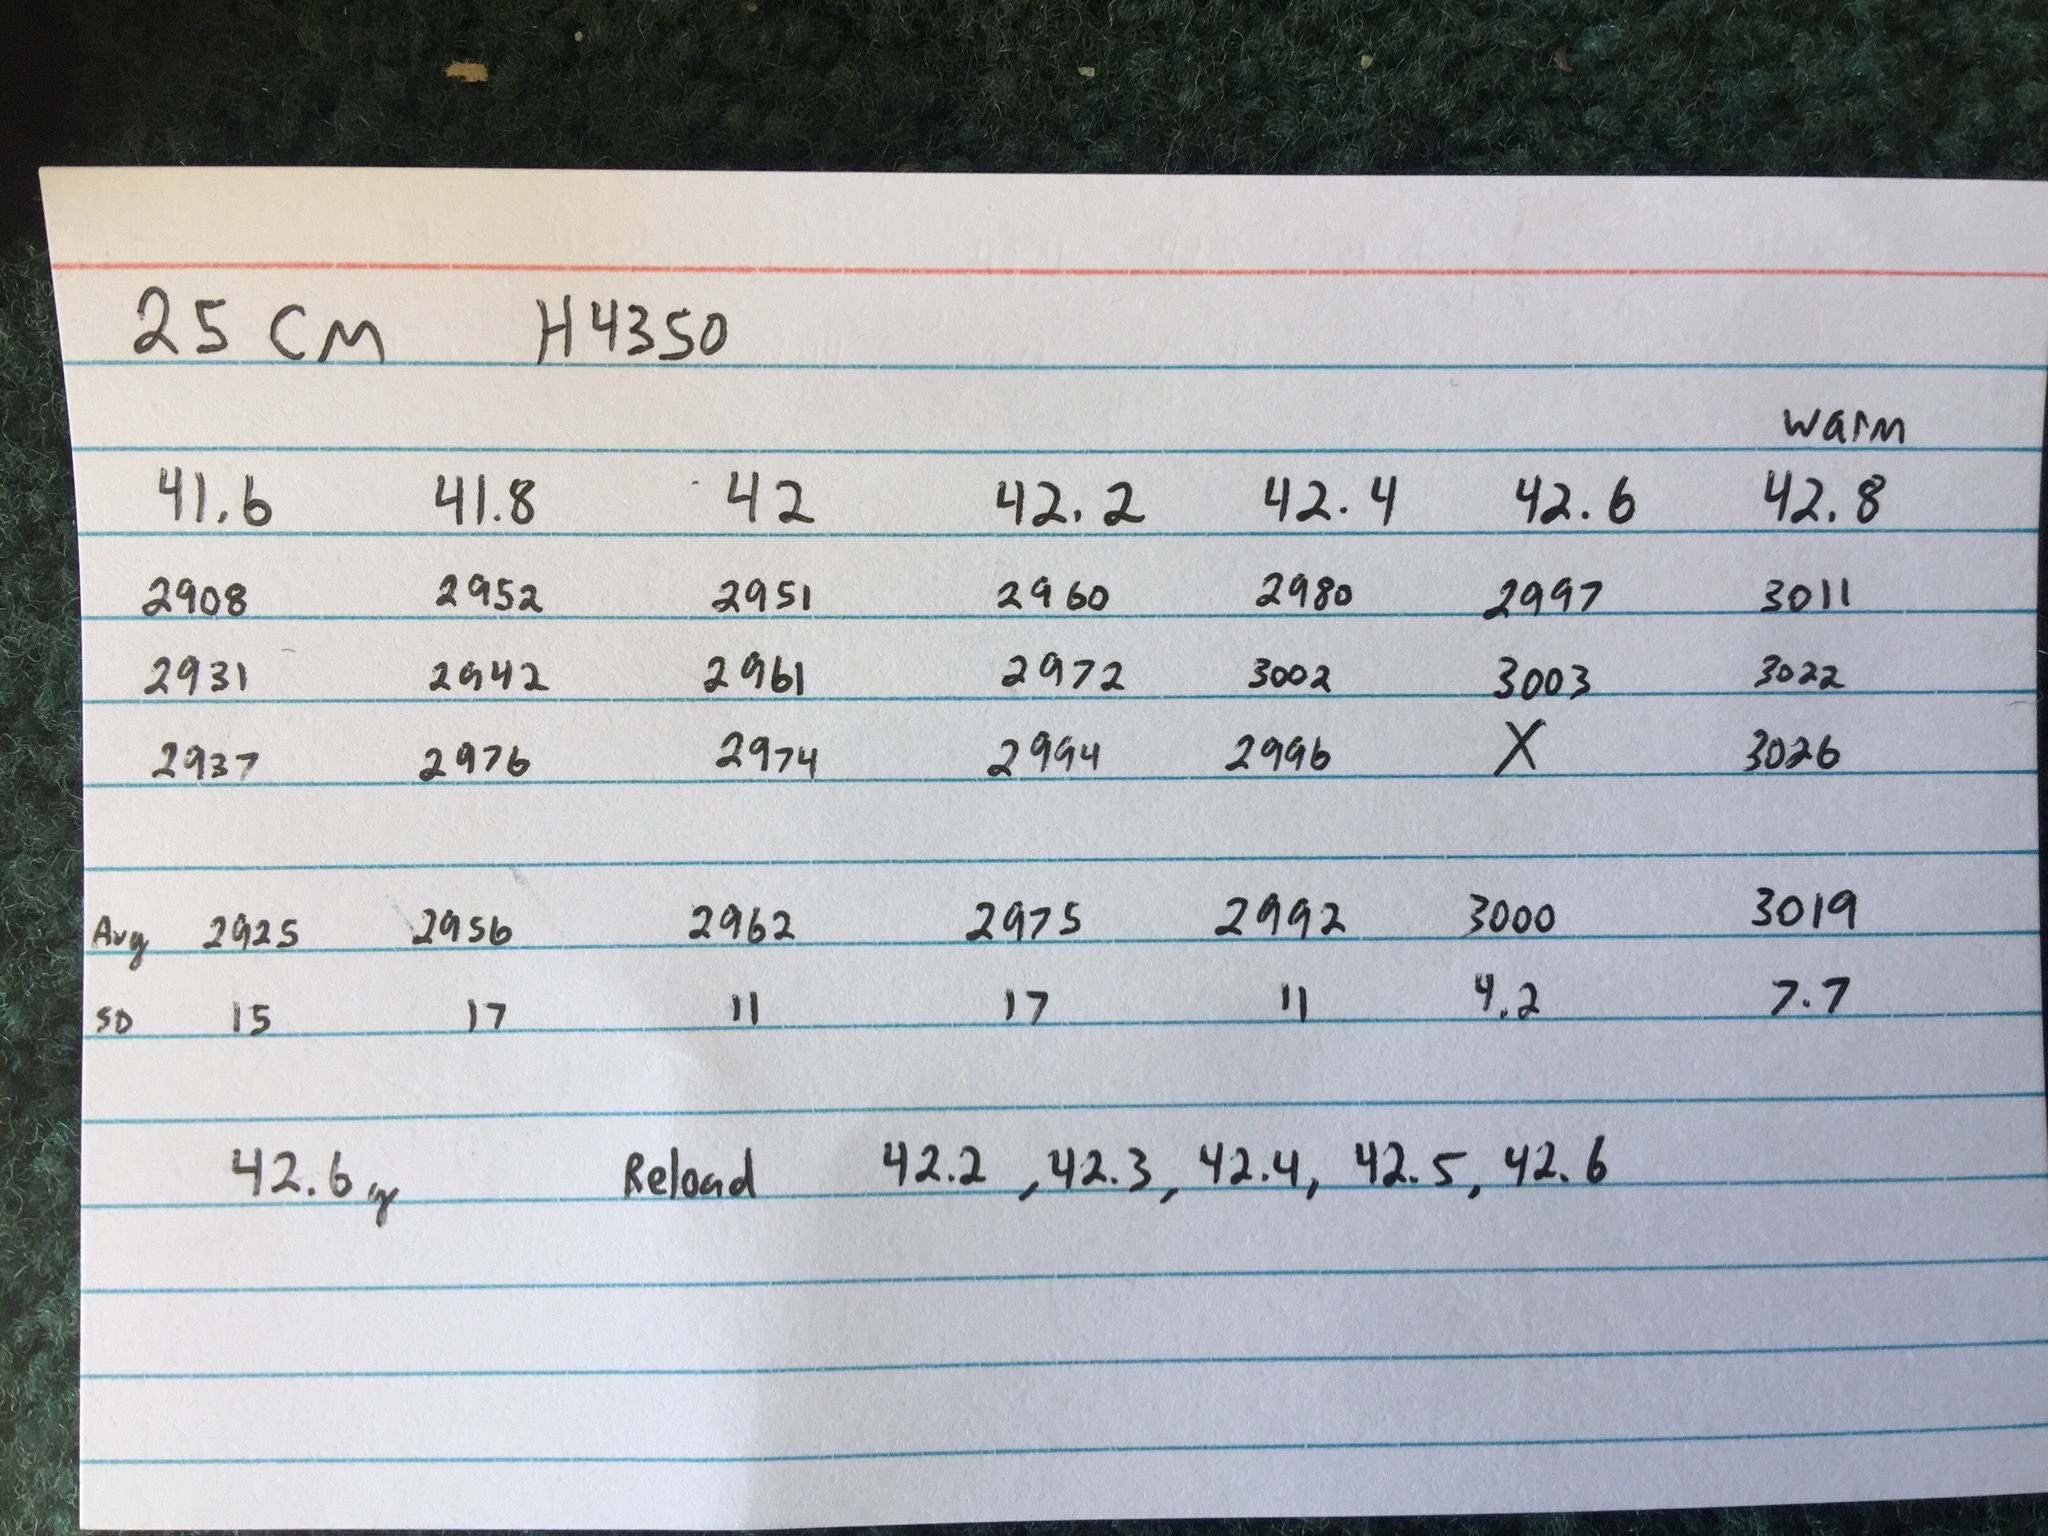 25 CM H4350
warm
41.6 41.8 42 42.2 42.4 42.6 42.8
2908 2952 2951 2960 2980 2997 3011
2931 2942 2961 2972 3002 3003 3022
2937 2976 2974 2994 2996 X 3026
Avg 2925 2956 2962 2975 2992 3000 3019
SD 15 17 11 17 11 4.2 7.7
42.6 gr Reload 42.2, 42.3, 42.4, 42.5, 42.6